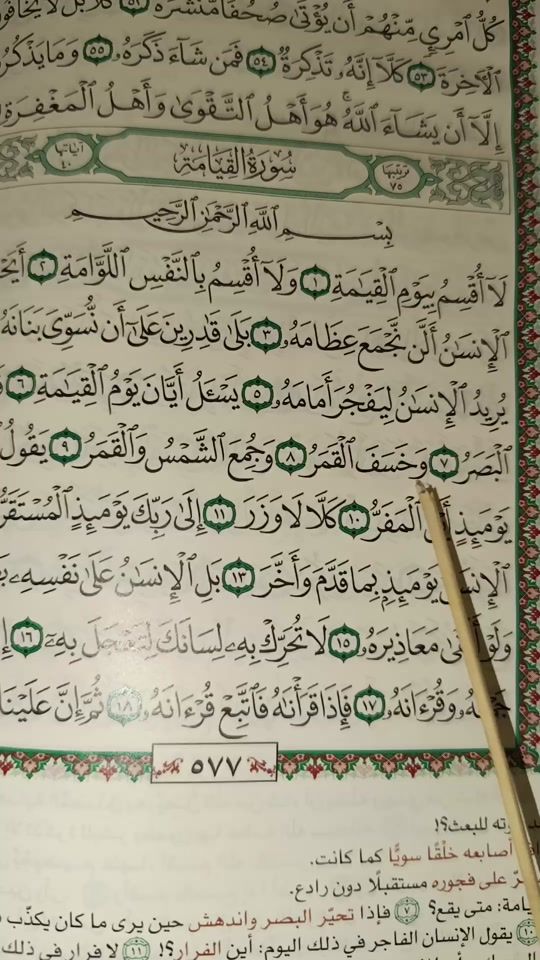 كُلُّ ٱمْرِيٕٖ مِّنْهُمْ أَن يُؤْتَىٰ صُحُفًا مُّنَشَّرَةً ٥٢ كَلَّا بَل لَّا يَخَافُو
ٱلْأٓخِرَةَ ٥٣ كَلَّآ إِنَّهُۥ تَذْكِرَةٌ ٥٤ فَمَن شَآءَ ذَكَرَهُۥ ٥٥ وَمَا يَذْكُرُ
إِلَّآ أَن يَشَآءَ ٱللَّهُ هُوَ أَهْلُ ٱلتَّقْوَىٰ وَأَهْلُ ٱلْمَغْفِرَةِ
ترتيبها ٧٥ سُورَةُ القِيَامَةِ آياتها ٤٠
بِسْمِ ٱللَّهِ ٱلرَّحْمَٰنِ ٱلرَّحِيمِ
لَآ أُقْسِمُ بِيَوْمِ ٱلْقِيَٰمَةِ ١ وَلَآ أُقْسِمُ بِٱلنَّفْسِ ٱللَّوَّامَةِ ٢ أَيَحْ
ٱلْإِنسَٰنُ أَلَّن نَّجْمَعَ عِظَامَهُۥ ٣ بَلَىٰ قَٰدِرِينَ عَلَىٰٓ أَن نُّسَوِّىَ بَنَانَهُ
يُرِيدُ ٱلْإِنسَٰنُ لِيَفْجُرَ أَمَامَهُۥ ٥ يَسْـَٔلُ أَيَّانَ يَوْمُ ٱلْقِيَٰمَةِ ٦
ٱلْبَصَرُ ٧ وَخَسَفَ ٱلْقَمَرُ ٨ وَجُمِعَ ٱلشَّمْسُ وَٱلْقَمَرُ ٩ يَقُولُ
يَوْمَئِذٍ أَيْنَ ٱلْمَفَرُّ ١٠ كَلَّا لَا وَزَرَ ١١ إِلَىٰ رَبِّكَ يَوْمَئِذٍ ٱلْمُسْتَقَرُّ
ٱلْإِنسَٰنُ يَوْمَئِذٍۭ بِمَا قَدَّمَ وَأَخَّرَ ١٣ بَلِ ٱلْإِنسَٰنُ عَلَىٰ نَفْسِهِۦ
وَلَوْ أَلْقَىٰ مَعَاذِيرَهُۥ ١٥ لَا تُحَرِّكْ بِهِۦ لِسَانَكَ لِتَعْجَلَ بِهِۦٓ ١٦
جَمْعَهُۥ وَقُرْءَانَهُۥ ١٧ فَإِذَا قَرَأْنَٰهُ فَٱتَّبِعْ قُرْءَانَهُۥ ١٨ ثُمَّ إِنَّ عَلَيْنَا
٥٧٧
للبعث؟!
أصابعه خلْقًا سويًّا كما كانت.
على فجوره مستقبلًا دون رادع.
متى يقع؟ ٧ فإذا تحيّر البصر واندهش حين يرى ما كان يكذّب
١٠ يقول الإنسان الفاجر في ذلك اليوم: أين الفرار؟! ١١ لا فرار في ذلك